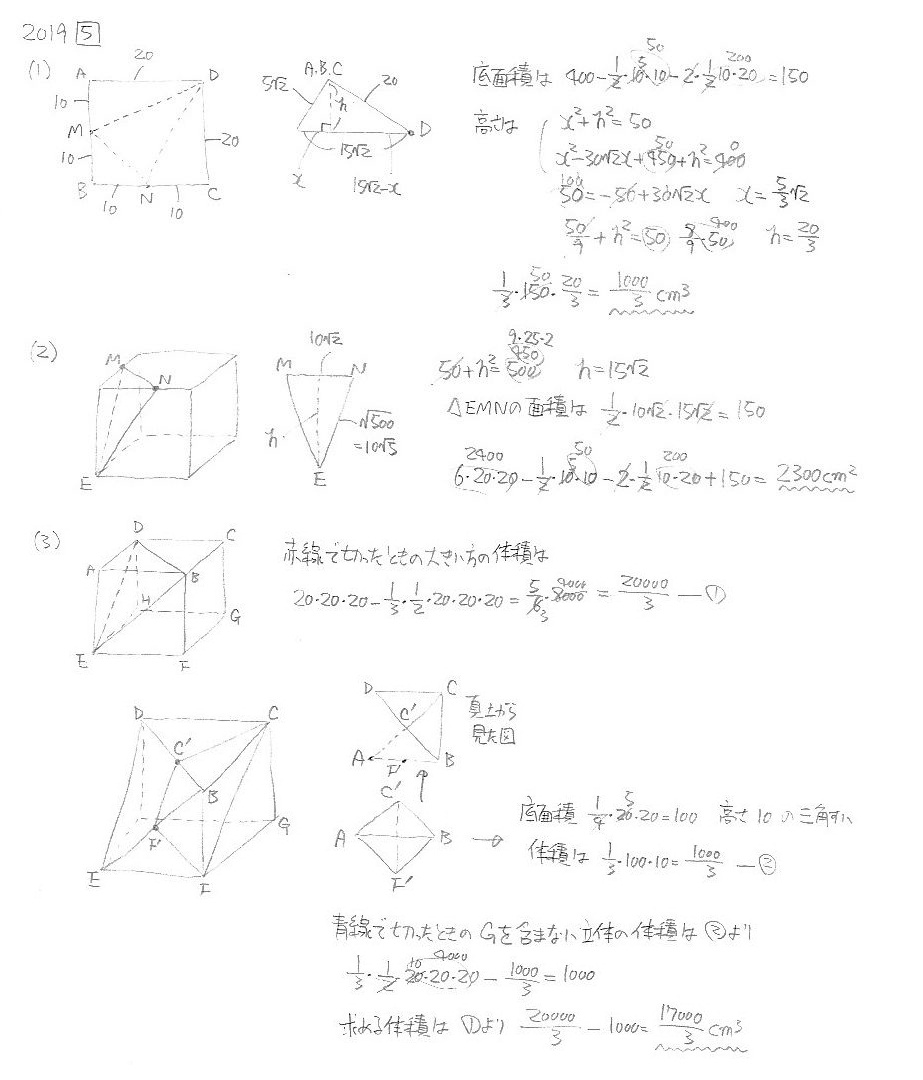 2019 5
(1)
A 20 D
10
M
10
B 10 N 10 C
20
A.B.C
5√2
20
h
D
15√2
x
15√2-x
底面積は 400-1/2・10・10-2・1/2・10・20=150
5
50
200
高さは x²+h²=50
x²-30√2x+450+h²=400
50
0
50=-50+30√2x x=5/3√2
100
50/9+h²=50 8/9・50 h=20/3
400
1/3・150・20/3=1000/3 cm³
50
(2)
M
N
E
10√2
M N
h
√500
=10√5
E
50+h²=500 h=15√2
9・25・2
450
△EMNの面積は 1/2・10√2・15√2=150
6・20・20-1/2・10・10-2・1/2・10・20+150=2300cm²
2400
5
50
200
(3)
D C
A B
H
G
E F
赤線で切ったときの大きい方の体積は
20・20・20-1/3・1/2・20・20・20=5/6・8000=20000/3 ―①
3
4000
D C
C'
B
F'
G
E F
D C
C'
A F' B
真上から
見た図
C'
A B
F'
底面積 1/4・20・20=100 高さ10の三角すい
5
体積は 1/3・100・10=1000/3 ―②
青線で切ったときのGを含まない立体の体積は②より
1/3・1/2・20・20・20-1000/3=1000
10
4000
求める体積は ①より 20000/3-1000=17000/3 cm³